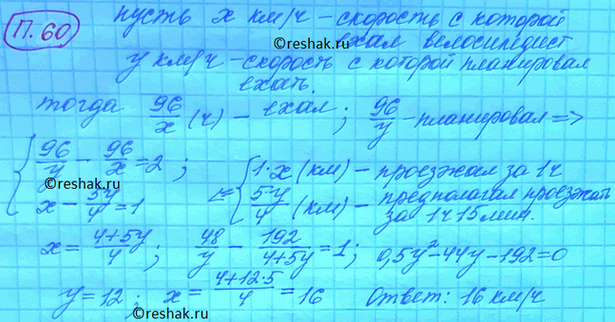 П. 60
пусть x км/ч - скорость с которой
© reshak.ru
ехал велосипедист
y км/ч - скорость с которой планировал
ехать.
тогда 96/x (ч) - ехал ; 96/y - планировал =>
{ 96/y - 96/x = 2 ;
x - 5y/4 = 1
© reshak.ru
<= { 1·x (км) - проезжал за 1ч
5y/4 (км) - предполагал проезжать
за 1ч 15 мин.
x = 4+5y/4 ; 48/y - 192/4+5y = 1 ; 0,5y² - 44y - 192 = 0
y = 12 ; x = 4+12·5/4 = 16 Ответ: 16 км/ч
© reshak.ru